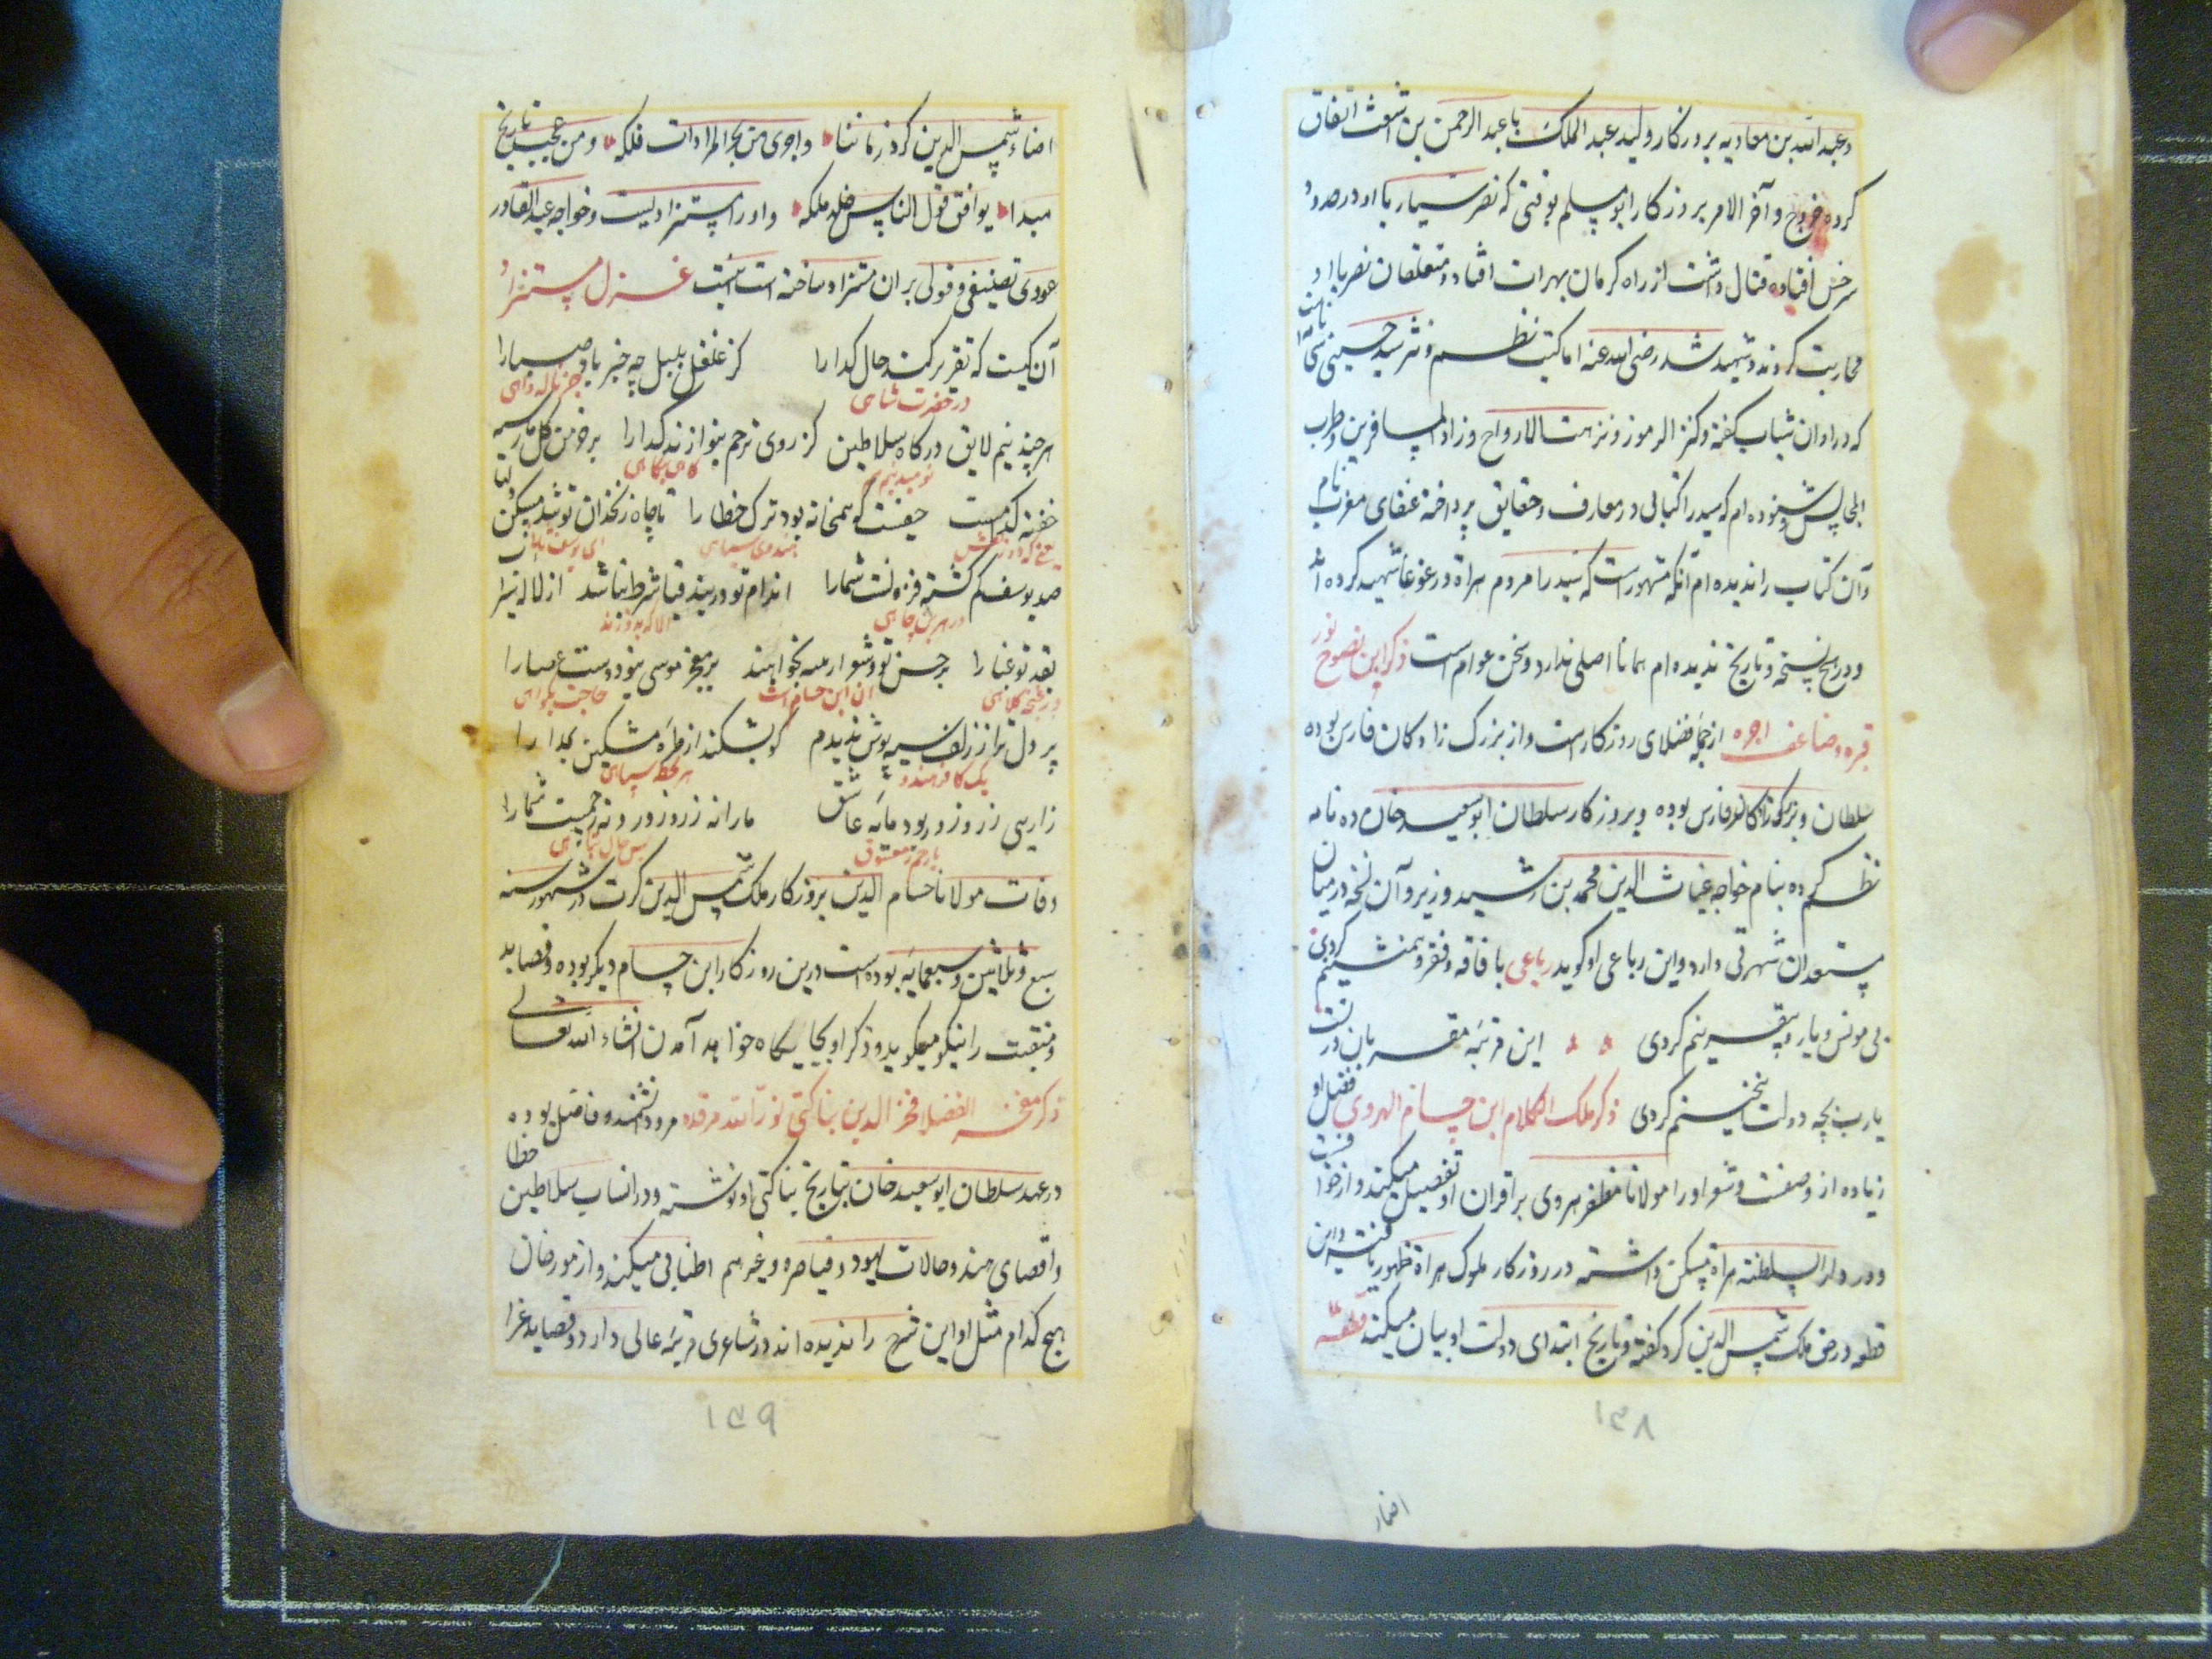 وعبدالله بن معاویه بروزکار ولید عبدالملک با عبدالرحمن بن اشعث اتفاق
کرده خروج و آخر الامر بروزکار ابومسلم بوقتی که نصر سیار با او در صدد
سرخس افتاده قتال داشت از راه کرمان بهرات افتاد و متعلقان نصر با او
محاربت کردند و شهید شد رضی الله عنه اما کتب نظم و نثر سید حسینی
که در اوان شباب کفته و کنز الرموز و نزهت الارواح و زاد المسافرین و طرب
المجالس و شنوده ام که سید را کتابی در معارف و حقایق پرداخته عنقای مغرب نام
و آن کتاب را ندیده ام آنکه مشهورست که سید را مردم هراة در غوغا شهید کرده اند
و در هیچ نسخه و تاریخ ندیده ام همانا اصلی ندارد و سخن عوام است ذکر ابن نصوح نور
قبره و ضاعف اجره از جمله فضلای روزکارست و از بزرک زادکان فارس بوده
سلطان و بزرکزادکان فارس بوده و بروزکار سلطان ابوسعید خان ده نامه
نظم کرده بنام خواجه غیاث الدین محمد بن رشید وزیر و آن نسخه در میان
مستعدان شهرتی دارد و این رباعی او کوید رباعی با فاقه و فقر همنشینم کردی
بی مونس و یار و قرینم کردی این مرتبه مقربان در تست
یارب بچه دولت اینچنینم کردی ذکر ملک الکلام ابن حسام الهروی فضل او
زیاده از وصفست و شعر او را مولانا مظفر هروی بر اقران او تفضیل میکند و از خوافست
و در دار السلطنه هراة مسکن داشته در روزکار ملوک هراة ظهور یافته و این
قطعه در حق ملک شمس الدین کرد کفته و تاریخ ابتدای دولت او بیان میکند قطعه
۱۳۸
اضاء
اضاء شمس الدین کرد زماننا واجری من بحر المرادات فلکه ومن عجب تاریخ
مبدا یوافق قول الناس خلد ملکه و او را مستزادیست و خواجه عبدالقادر
عودی تصنیفی و قولی بر آن مستزاد ساخته است اینست غزل مستزاد
آن کیست که تقریر کند حال کدا را کز غلغل بلبل چه خبر باد صبا را
در حضرت شاهی جز ناله و آهی
هر چند نیم لایق درکاه سلاطین کز روی ترحم بنوازند کدا را بر خرمن کل مار سیه
نومید نیم هم کاهی بنکاهی
خفته کدامست حیفست که همخانه بود ترک خطا را تا چاه زنخدان تو شد مسکن دلها
هندوی سیاهی ای یوسف ثانی
صد یوسف کم کشته فزونست شما را اندام تو در بند قبا شرط نباشد از لاله سیراب
در هر بن چاهی الا که بدوزند
بقد تو قبا را بر حسن تو دشوار همه بخواهند بر معجز موسی بنود دست عصا را
ان ابن حسام است حاجت بکواهی
پر دل تر از زلف سیه پوش ندیدم کو بشکند از طره مشکین بمدارا
یک کافر هندو هر لحظه سپاهی
زاری ز زر و زور بود مایه عاشق ما را نه زر و زور و نه رحمیست شما را
یا رحم ز معشوق بس حال تباهی
وفات مولانا حسام الدین بروزکار ملک شمس الدین کرت در شهور سنه
سبع و ثلاثین و سبعمایه بوده است درین روزکار ابن حسام دیکر بوده و قصاید
و منقبت را نیکو میکوید و ذکر او بجایکاه خواهد آمدن انشاء الله تعالی
ذکر مفخر الفضلا فخر الدین بناکتی نور الله مرقده مرد دانشمند و فاضل بوده
در عهد سلطان ابوسعید خان بتاریخ بناکتی او نوشته و در انساب سلاطین خطا
و اقصای هند و حالات یهود و قیاصره و غیرهم اطنابی میکند و از مورخان
هیچ کدام مثل او این شرح را ندیده اند در شاعری مرتبه عالی دارد و قصاید غرا
۱۳۹